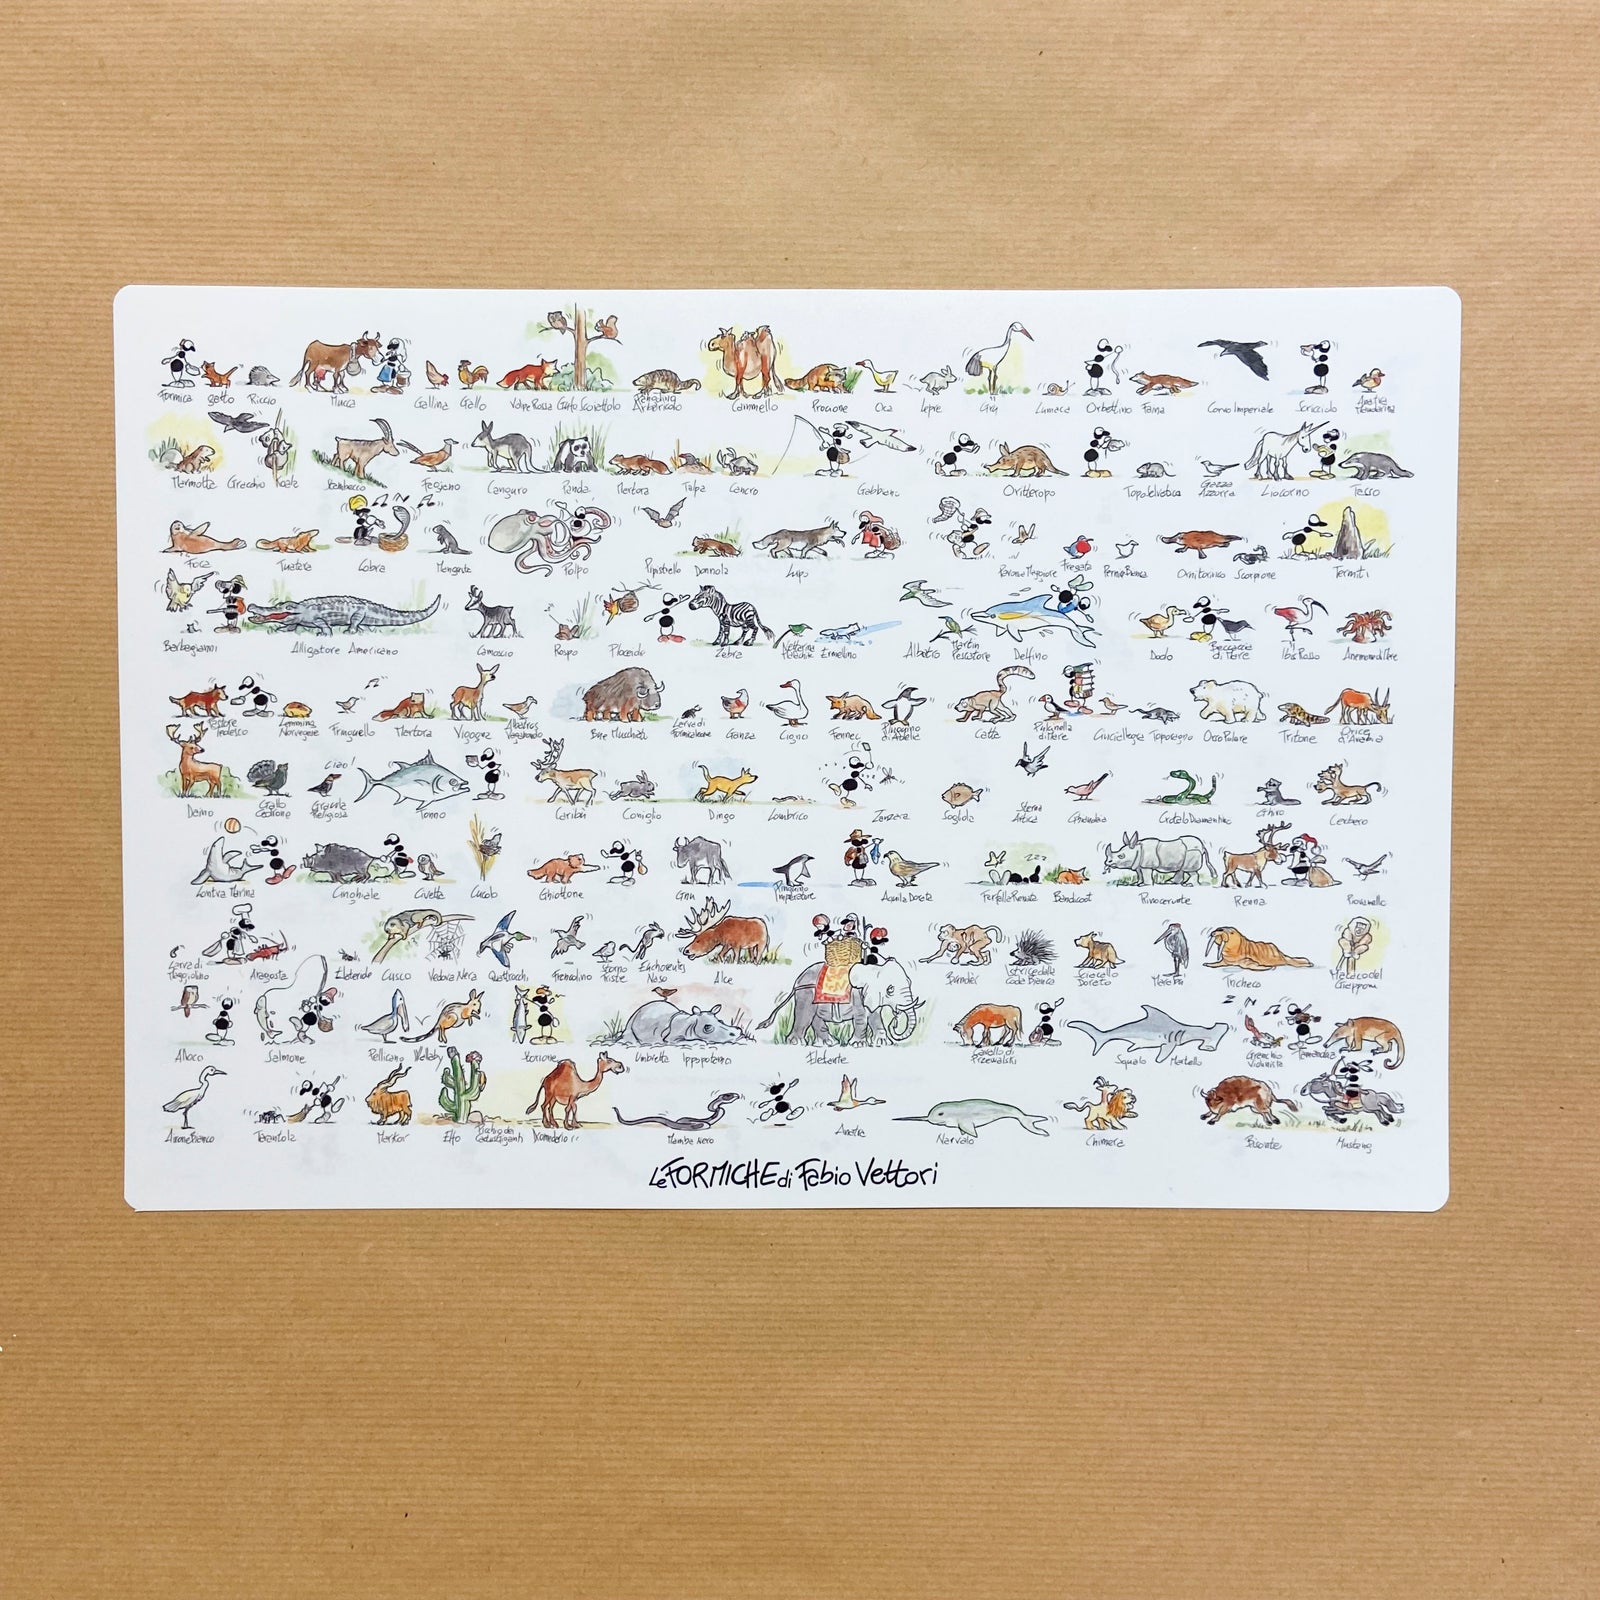 Formica gatto Riccio Mucca Gallina Gallo Volpe Rossa Gufo Scoiattolo Pangolino Arboricolo Cammello Procione Oca Lepre Gru Lumaca Orbettino Faina Corvo Imperiale Scricciolo Anatra Mandarina
Marmotta Gracchio Koala Stambecco Fagiano Canguro Panda Martora Talpa Cancro Gabbiano Oritteropo Topo Selvatico Gazza Azzurra Liocorno Tasso
Foca Tuatara Cobra Mangusta Polpo Pipistrello Donnola Lupo Pavone Maggiore Fregata Pernice Bianca Ornitorinco Scorpione Termiti
Barbagianni Alligatore Americano Camoscio Rospo Ploceide Zebra Ermellino Albatro Martin Pescatore Delfino Dodo Beccaccia di Mare Ibis Rosso Anemone di Mare
Pastore Tedesco Lemming Norvegese Fringuello Martora Vigogna Albatros Vagabondo Bue Muschiato Larva di Formicaleone Ganza Cigno Fennec Pinguino di Adelie Catta Pulcinella di Mare Cinciallegra Toporagno Orso Polare Tritone Orice d'Arabia
Ciao!
Daino Gallo Cedrone Gracula Religiosa Tonno Caribù Coniglio Dingo Lombrico Zanzara Sogliola Sterna Artica Ghiandaia Crotalo Diamantino Ghiro Cerbero
zzz
Lontra Marina Cinghiale Civetta Cuculo Ghiottone Gnu Pinguino Imperatore Aquila Dorata Farfalla Renata Bandicoot Rinoceronte Renna Piovanello
Larva di Maggiolino Aragosta Elateride Cusco Vedova Nera Quattrocchi Francolino Storno Triste Alce Istrice dalla Coda Bianca Sciacallo Dorato Marabù Tricheco Macaco del Giappone
Z N
Allocco Salmone Pellicano Wallaby Storione Umbretta Ippopotamo Elefante Cavallo di Przewalski Squalo Martello Granchio Violinista Tamandua
Airone Bianco Tarantola Markor Elfo Picchio dei Cactus Giganti Dromedario Mamba Nero Anatra Narvalo Chimera Bisonte Mustang
Le FORMICHE di Fabio Vettori